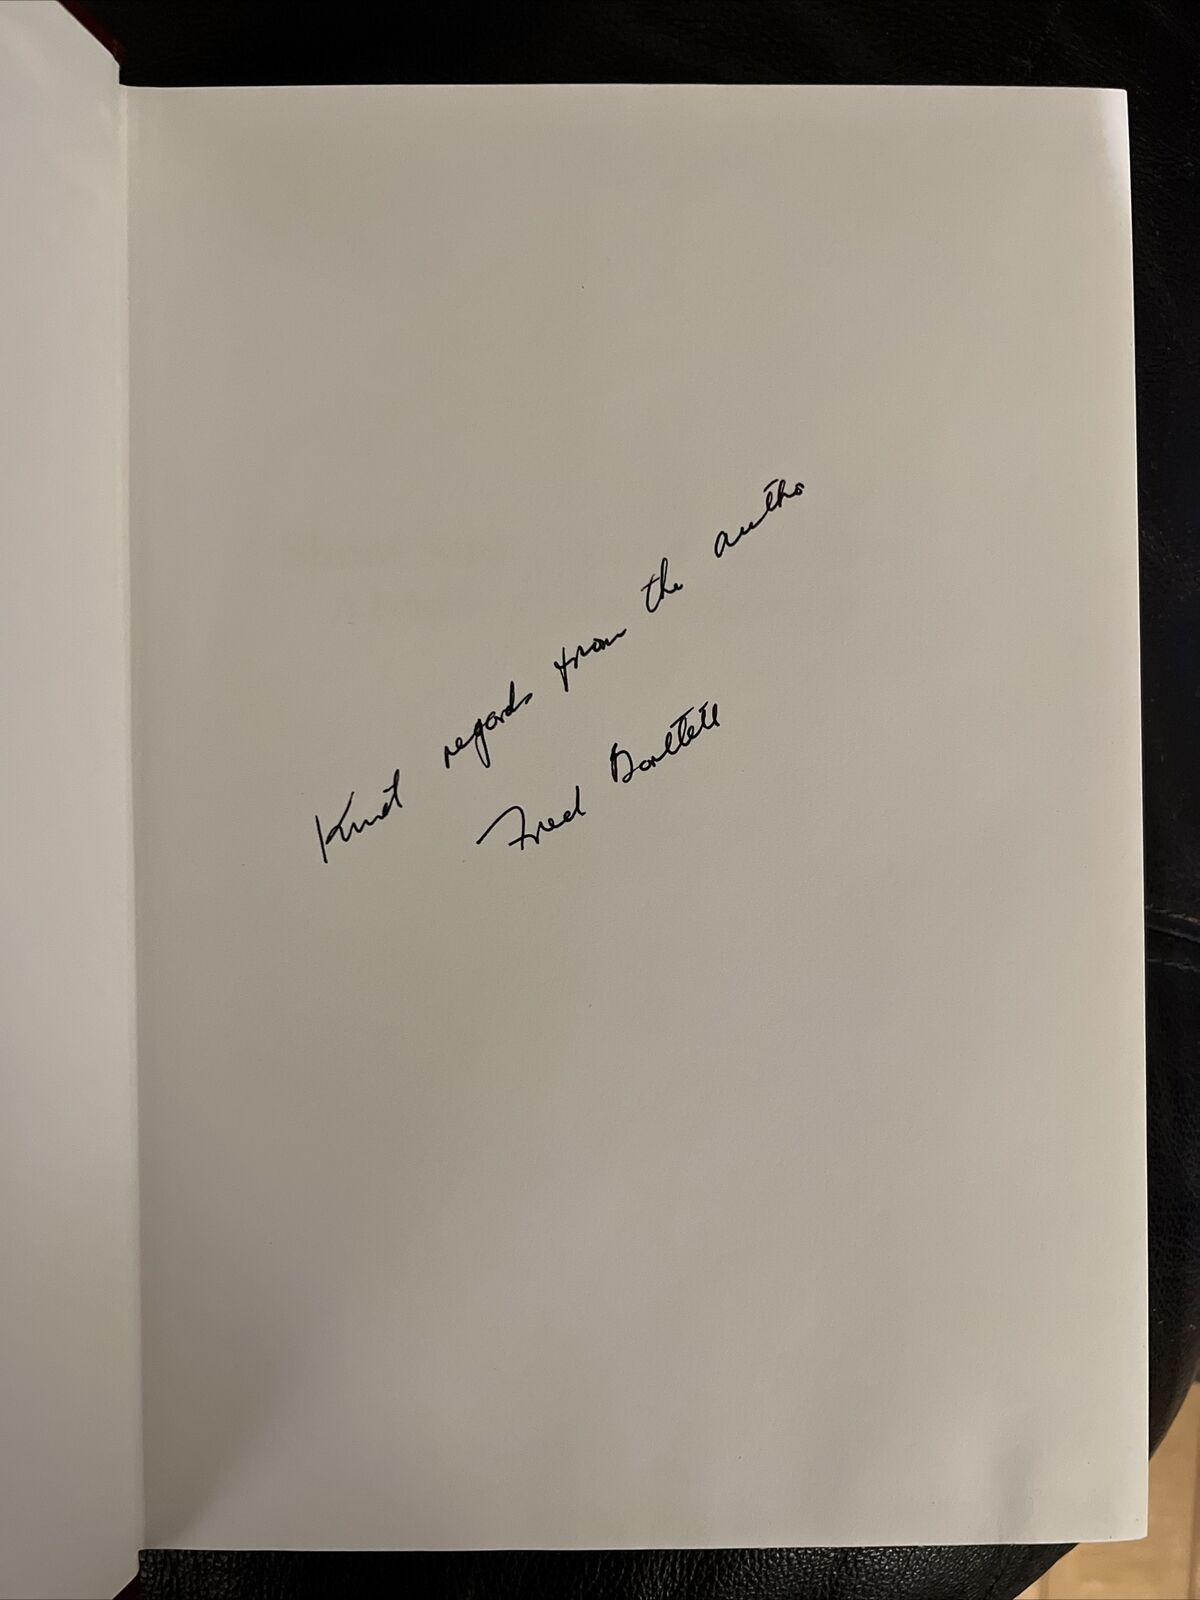 Kind regards from the author
Fred Bartlett